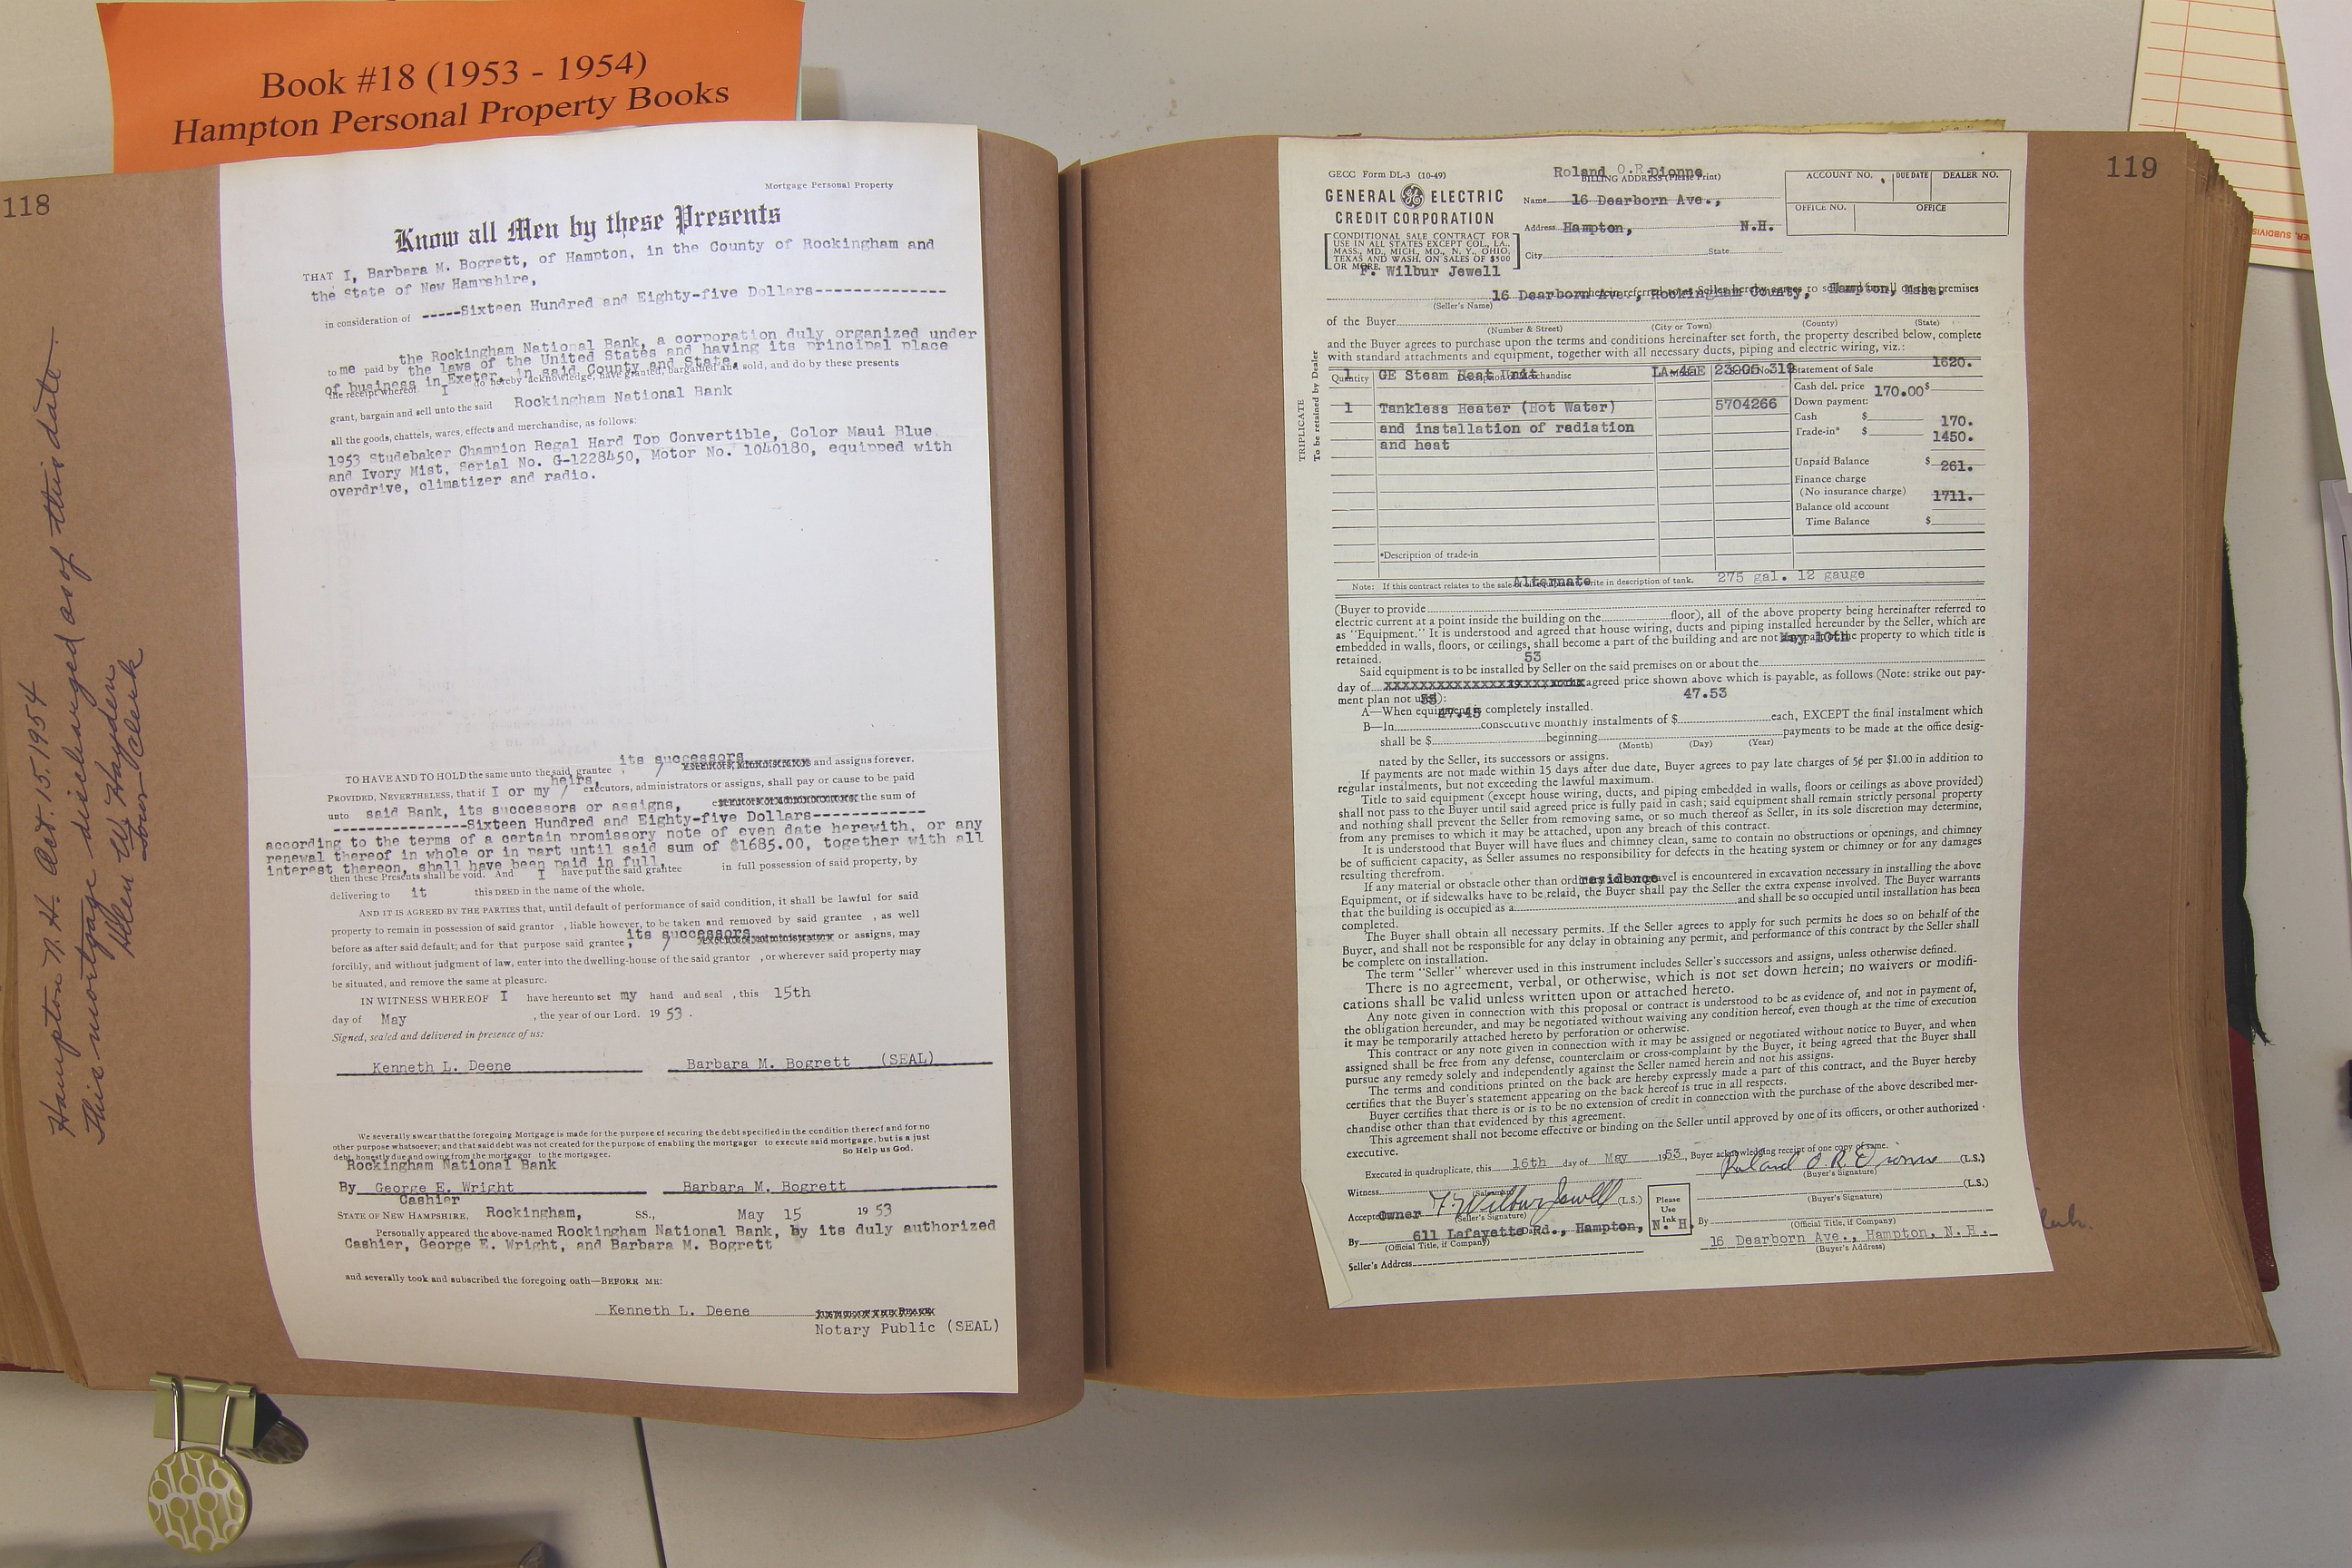 Book #18 (1953 - 1954)
Hampton Personal Property Books
118
Hampton N. H. Oct. 15, 1954
This mortgage discharged as of this date.
Helen W. Hayden
Town Clerk
Mortgage Personal Property
Know all Men by these Presents
THAT I, Barbara M. Bogrett, of Hampton, in the County of Rockingham and
the State of New Hampshire,
in consideration of -----Sixteen Hundred and Eighty-five Dollars---------------
the Rockingham National Bank, a corporation duly organized under
to me paid by the laws of the United States and having its principal place
of business in Exeter, in said County and State,
the receipt whereof I do hereby acknowledge, have granted, bargained and sold, and do by these presents
grant, bargain and sell unto the said Rockingham National Bank
all the goods, chattels, wares, effects and merchandise, as follows:
1953 Studebaker Champion Regal Hard Top Convertible, Color Maui Blue
and Ivory Mist, Serial No. G-1228450, Motor No. 1040180, equipped with
overdrive, climatizer and radio.
TO HAVE AND TO HOLD the same unto the said grantee, its successors and assigns forever.
PROVIDED, NEVERTHELESS, that if I or my heirs, executors, administrators or assigns, shall pay or cause to be paid
unto said Bank, its successors or assigns, the sum of
----------------Sixteen Hundred and Eighty-five Dollars-------------
according to the terms of a certain promissory note of even date herewith, or any
renewal thereof in whole or in part until said sum of $1685.00, together with all
interest thereon, shall have been paid in full,
then these Presents shall be void. And I have put the said grantee in full possession of said property, by
delivering to it this DEED in the name of the whole.
AND IT IS AGREED BY THE PARTIES that, until default of performance of said condition, it shall be lawful for said
property to remain in possession of said grantor , liable however, to be taken and removed by said grantee , as well
before as after said default; and for that purpose said grantee, its successors or assigns, may
forcibly, and without judgment of law, enter into the dwelling-house of the said grantor , or wherever said property may
be situated, and remove the same at pleasure.
IN WITNESS WHEREOF I have hereunto set my hand and seal , this 15th
day of May , the year of our Lord. 19 53 .
Signed, sealed and delivered in presence of us:
Kenneth L. Deene Barbara M. Bogrett (SEAL)
We severally swear that the foregoing Mortgage is made for the purpose of securing the debt specified in the condition thereof and for no
other purpose whatsoever; and that said debt was not created for the purpose of enabling the mortgagor to execute said mortgage, but is a just
debt, honestly due and owing from the mortgagor to the mortgagee. So Help us God.
Rockingham National Bank
By George E. Wright Barbara M. Bogrett
Cashier
STATE OF NEW HAMPSHIRE, Rockingham, SS., May 15 19 53
Personally appeared the above-named Rockingham National Bank, by its duly authorized
Cashier, George E. Wright, and Barbara M. Bogrett
and severally took and subscribed the foregoing oath—BEFORE ME:
Kenneth L. Deene
Notary Public (SEAL)
119
GECC Form DL-3 (10-49)
GENERAL GE ELECTRIC
CREDIT CORPORATION
CONDITIONAL SALE CONTRACT FOR
USE IN ALL STATES EXCEPT COL., LA.,
MASS., MD., MICH., MO., N. Y., OHIO,
TEXAS AND WASH. ON SALES OF $500
OR MORE.
Roland O.R. Dionne
BILLING ADDRESS (Please Print)
Name 16 Dearborn Ave.,
Address Hampton, N.H.
City State
ACCOUNT NO. DUE DATE DEALER NO.
OFFICE NO. OFFICE
F. Wilbur Jewell
16 Dearborn Ave., Rockingham County, Hampton, Mass.
(Seller's Name)
of the Buyer
(Number & Street) (City or Town) (County) (State)
and the Buyer agrees to purchase upon the terms and conditions hereinafter set forth, the property described below, complete
with standard attachments and equipment, together with all necessary ducts, piping and electric wiring, viz.:
TRIPLICATE
To be retained by Dealer
Quantity Description of Merchandise Statement of Sale 1620.
1 GE Steam Heat Unit LA-46E 23005 319
Cash del. price $ 170.00
1 Tankless Heater (Hot Water) 5704266
Down payment:
and installation of radiation
and heat
Cash $ 170.
Trade-in* $ 1450.
Unpaid Balance $ 261.
Finance charge
(No insurance charge) 1711.
Balance old account
Time Balance $
*Description of trade-in
Note: If this contract relates to the sale of oil equipment, write in description of tank. 275 gal. 12 gauge
Alternate
(Buyer to provide
electric current at a point inside the building on the floor), all of the above property being hereinafter referred to
as "Equipment." It is understood and agreed that house wiring, ducts and piping installed hereunder by the Seller, which are
embedded in walls, floors, or ceilings, shall become a part of the building and are not any part of the property to which title is
retained. May 10th
53
Said equipment is to be installed by Seller on the said premises on or about the
day of agreed price shown above which is payable, as follows (Note: strike out pay-
ment plan not used):
A—When equipment is completely installed. 47.53
B—In consecutive monthly instalments of $ each, EXCEPT the final instalment which
47.45
shall be $ beginning payments to be made at the office desig-
(Month) (Day) (Year)
nated by the Seller, its successors or assigns.
If payments are not made within 15 days after due date, Buyer agrees to pay late charges of 5¢ per $1.00 in addition to
regular instalments, but not exceeding the lawful maximum.
Title to said equipment (except house wiring, ducts, and piping embedded in walls, floors or ceilings as above provided)
shall not pass to the Buyer until said agreed price is fully paid in cash; said equipment shall remain strictly personal property
and nothing shall prevent the Seller from removing same, or so much thereof as Seller, in its sole discretion may determine,
from any premises to which it may be attached, upon any breach of this contract.
It is understood that Buyer will have flues and chimney clean, same to contain no obstructions or openings, and chimney
be of sufficient capacity, as Seller assumes no responsibility for defects in the heating system or chimney or for any damages
resulting therefrom.
If any material or obstacle other than ordinary dirt or gravel is encountered in excavation necessary in installing the above
Equipment, or if sidewalks have to be relaid, the Buyer shall pay the Seller the extra expense involved. The Buyer warrants
that the building is occupied as a residence and shall be so occupied until installation has been
completed.
The Buyer shall obtain all necessary permits. If the Seller agrees to apply for such permits he does so on behalf of the
Buyer, and shall not be responsible for any delay in obtaining any permit, and performance of this contract by the Seller shall
be complete on installation.
The term "Seller" wherever used in this instrument includes Seller's successors and assigns, unless otherwise defined.
There is no agreement, verbal, or otherwise, which is not set down herein; no waivers or modifi-
cations shall be valid unless written upon or attached hereto.
Any note given in connection with this proposal or contract is understood to be as evidence of, and not in payment of,
the obligation hereunder, and may be negotiated without waiving any condition hereof, even though at the time of execution
it may be temporarily attached hereto by perforation or otherwise.
This contract or any note given in connection with it may be assigned or negotiated without notice to Buyer, and when
assigned shall be free from any defense, counterclaim or cross-complaint by the Buyer, it being agreed that the Buyer shall
pursue any remedy solely and independently against the Seller named herein and not his assigns.
The terms and conditions printed on the back are hereby expressly made a part of this contract, and the Buyer hereby
certifies that the Buyer's statement appearing on the back hereof is true in all respects.
Buyer certifies that there is or is to be no extension of credit in connection with the purchase of the above described mer-
chandise other than that evidenced by this agreement.
This agreement shall not become effective or binding on the Seller until approved by one of its officers, or other authorized
executive.
Executed in quadruplicate, this 16th day of May 1953, Buyer acknowledging receipt of one copy of same.
Witness Roland O. R. Dionne (L.S.)
(Salesman) (Buyer's Signature)
Accepted Owner F. Wilbur Jewell (L.S.) (L.S.)
(Seller's Signature) (Buyer's Signature)
Please
Use
Ink
By 611 Lafayette Rd., Hampton, N. H. By
(Official Title, if Company) (Official Title, if Company)
16 Dearborn Ave., Hampton, N.H.
Seller's Address (Buyer's Address)